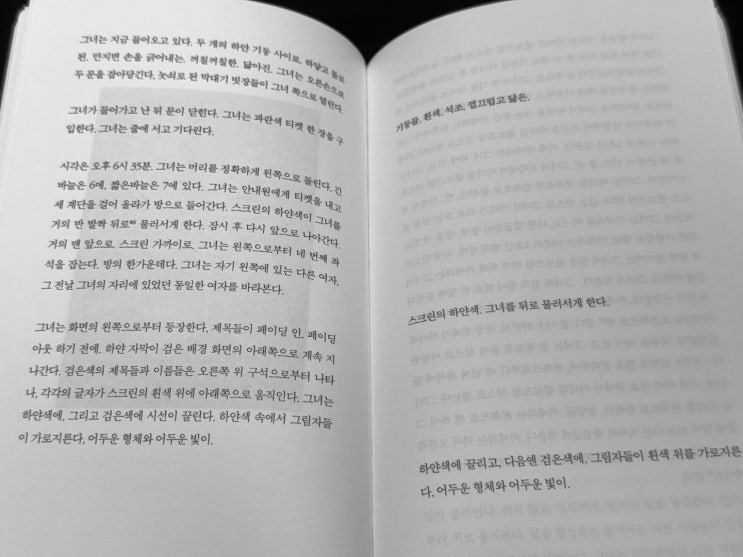 그녀는 지금 들어오고 있다. 두 개의 하얀 기둥 사이로, 하얗고 돌로
된, 만지면 손을 긁어내는, 꺼칠꺼칠한, 닳아진, 그녀는 오른손으로
두 문을 잡아당긴다, 놋쇠로 된 막대기 빗장들이 그녀 쪽으로 열린다.
그녀가 들어가고 난 뒤 문이 닫힌다. 그녀는 파란색 티켓 한 장을 구
입한다. 그녀는 줄에 서고 기다린다.
시각은 오후 6시 35분. 그녀는 머리를 정확하게 왼쪽으로 돌린다. 긴
바늘은 6에, 짧은바늘은 7에 있다. 그녀는 안내원에게 티켓을 내고
세 계단을 걸어 올라가 방으로 들어간다. 스크린의 하얀색이 그녀를
거의 반 발짝 뒤로 물러서게 한다. 잠시 후 다시 앞으로 나아간다.
거의 맨 앞으로, 스크린 가까이로, 그녀는 왼쪽으로부터 네 번째 좌
석을 잡는다. 방의 한가운데다. 그녀는 자기 왼쪽에 있는 다른 여자,
그 전날 그녀의 자리에 있었던 동일한 여자를 바라본다.
그녀는 화면의 왼쪽으로부터 등장한다, 제목들이 페이딩 인, 페이딩
아웃 하기 전에, 하얀 자막이 검은 배경 화면의 아래쪽으로 계속 지
나간다. 검은색의 제목들과 이름들은 오른쪽 위 구석으로부터 나타
나, 각각의 글자가 스크린의 흰색 위에 아래쪽으로 움직인다. 그녀는
하얀색에, 그리고 검은색에 시선이 끌린다. 하얀색 속에서 그림자들
이 가로지른다, 어두운 형체와 어두운 빛이.
기둥들. 흰색. 석조. 껄끄럽고 닳은.
스크린의 하얀색. 그녀를 뒤로 물러서게 한다.
하얀색에 끌리고, 다음엔 검은색에. 그림자들이 흰색 위를 가로지른
다, 어두운 형체와 어두운 빛이.